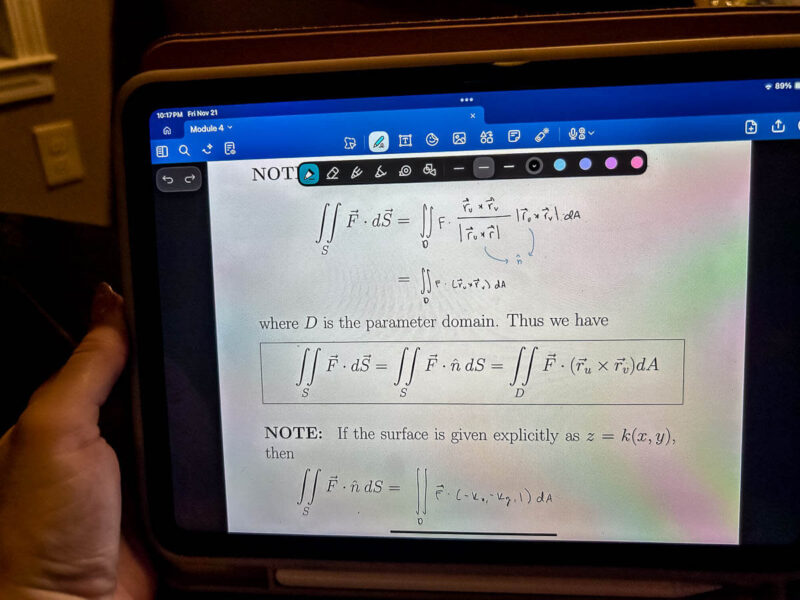 10:17 PM Fri Nov 21
89%
Module 4
NOT
∬_S F⃗ · dS⃗ = ∬_D F · (r⃗_u × r⃗_v)/|r⃗_u × r⃗| |r⃗_u × r⃗_v| dA
n̂
= ∬_D F · (r⃗_u × r⃗_v) dA
where D is the parameter domain. Thus we have
∬_S F⃗ · dS⃗ = ∬_S F⃗ · n̂ dS = ∬_D F⃗ · (r⃗_u × r⃗_v)dA
NOTE: If the surface is given explicitly as z = k(x, y),
then
∬_S F⃗ · n̂ dS = ∬_D F⃗ · (-k_x, -k_y, 1) dA